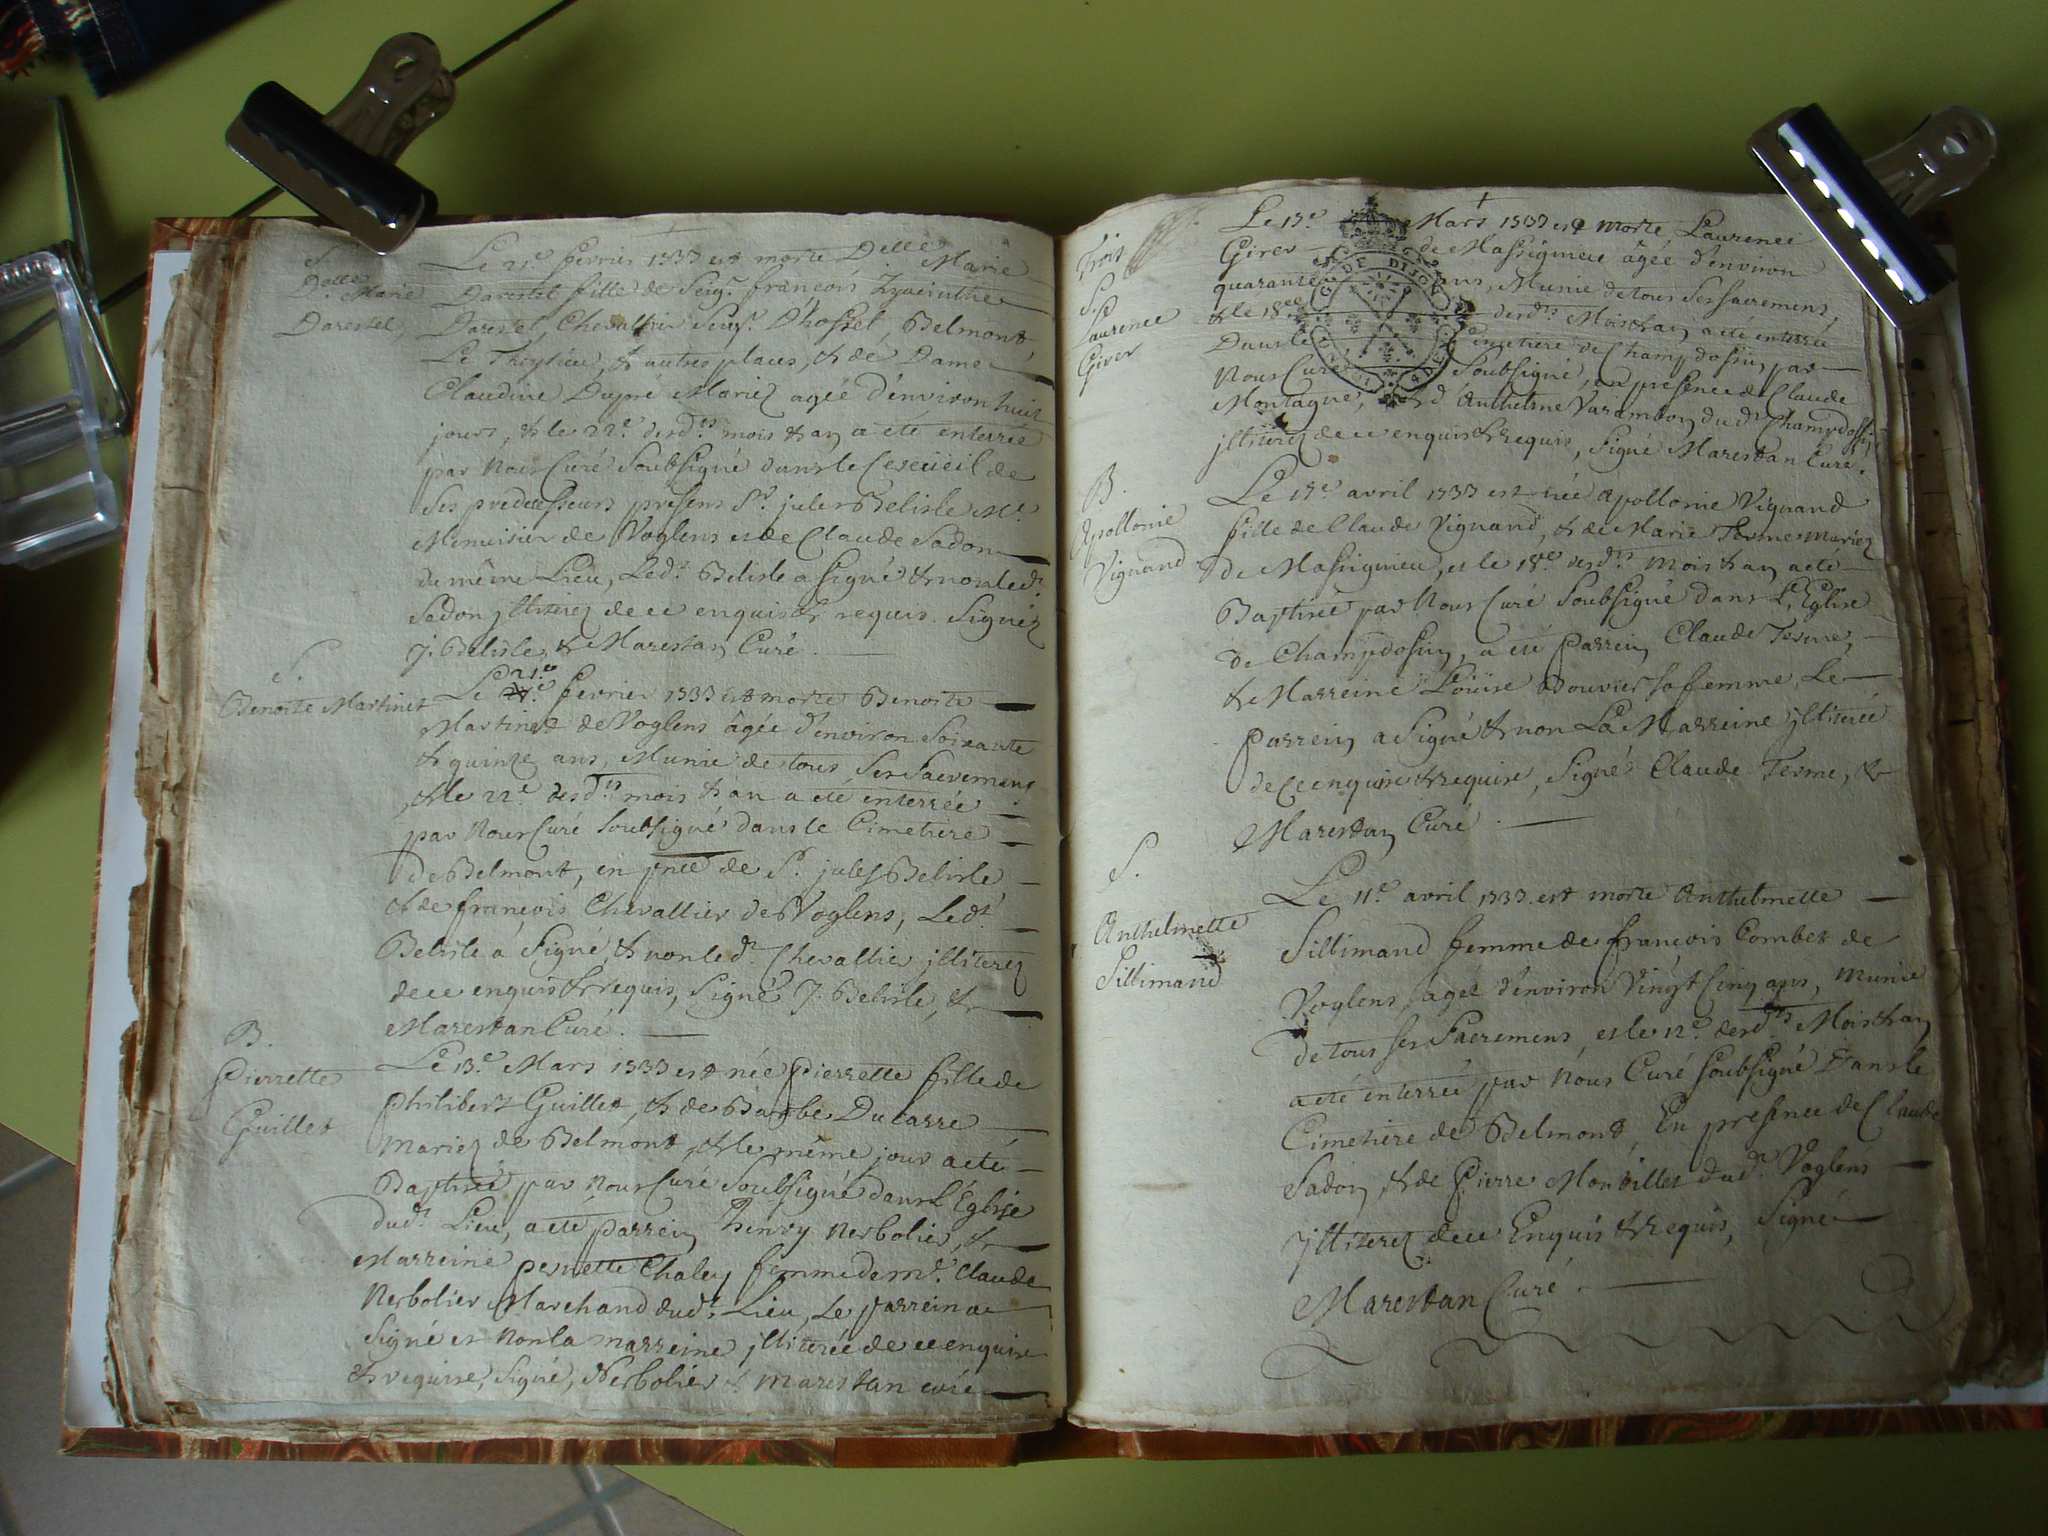 S.
D.elle Marie
Darestel
Le 21.e fevrier 1733 est morte D.elle Marie
Darestel fille de Seig.r françois hyacinthe
Darestel, Chevallier Seig.r D'hostel, Belmont,
Le & autres places, & de Dame
Claudine Dupre Mariez agée d'environ huit
jours, & le 22.e desd.ts mois & an a été enterrée
par Nous Curé Soubsigné dans le de
Ses predecesseurs presens S.r jules Belisle M.e
Menuisier de Voglens et de Claude Sadon
du même Lieu, Led.t Belisle a signé & non led.t
Sadon jlliterez de ce enquis & requis. Signéz
J. Belisle, & Marestan Curé.
S.
Benoite Martinet
Le 21.e fevrier 1733 est morte Benoite
Martinet de Voglens âgée d'environ Soixante
& quinze ans, Munie de tous Ses Sacremens
& le 22.e desd.ts mois & an a été enterrée
par Nous Curé Soubsigné dans le Cimetiere
de Belmont, en pnce de S.r jules Belisle
& de françois Chevallier de Voglens, Led.t
Belisle a Signé, & non led.t Chevallier jlliterez
de ce enquis & requis, Signé J. Belisle, &
Marestan Curé.
B.
Pierrette
Guillet
Le 13.e Mars 1733 est née Pierrette fille de
Philibert Guillet, & de Barbe Ducarre
Mariez de Belmont, & le même jour a été
Baptisée par Nous Curé Soubsigné dans L'Églije
dud.t Lieu, a eté parrein, henry Nerbolier, &
Marreine pernette Chaley femme de m.e Claude
Nerbolier Marchand dud.t Lieu, Le parrein a
Signé et Non la marreine jlliterée de ce enquise
& requise, Signé, Nerbolier & Marestan curé
Trois
S.
Laurence
Girer
Le 17.e Mars 1733 est morte Laurence
Girer de Massignieu âgée d'environ
quarante ans, Munie de tous Ses Sacremens,
& le 18.e desd.ts Mois & an a été enterrée
Dans le Cimetiere de Champdossin, par
Nous Curé Soubsigné, en presence de Claude
Montagne, & d'Anthelme Varambon dud.t Champdossin
jlliterez de ce enquis & requis, Signé Marestan Curé.
DE DIJON
B.
Apollonie
Vignand
Le 17.e avril 1733 est née Apollonie Vignand
fille de Claude Vignand, & de Marie Terme mariez
de Massignieu, et le 18.e desd.ts mois & an a été
Baptisée par Nous Curé Soubsigné dans L'Eglise
de Champdossin, a été Parrein Claude Terme,
& Marreine Loüise Bouvier Sa femme, Le
Parrein a Signé & non La Marreine jlliterée
de ce enquise & requise, Signé Claude Terme, &
Marestan Curé.
S.
Anthelmette
Sillimand
Le 11.e avril 1733 est morte Anthelmette
Sillimand femme de françois Combet de
Voglens, agée d'environ Vingt Cinq ans, munie
de tous ses Sacremens, et le 12.e desd.ts Mois & an
a été enterrée par Nous Curé Soubsigné Dans le
Cimetiere de Belmont, En presence de Claude
Sadon, & de Pierre Monbillet dud.t Voglens
jlliterez de ce Enquis & requis, Signé
Marestan Curé.